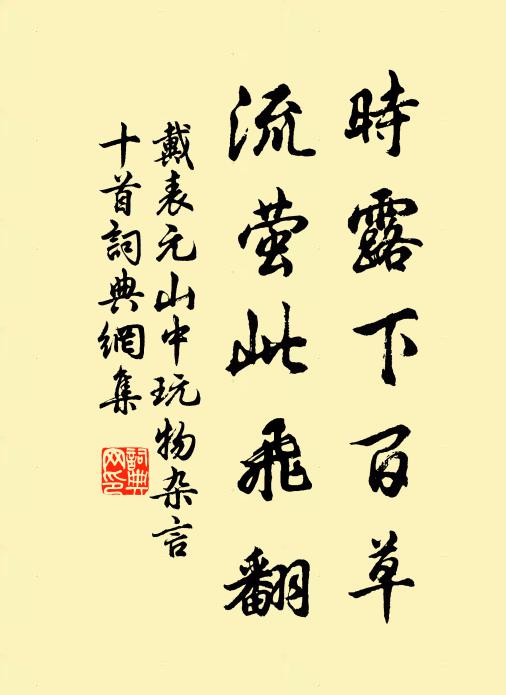 時露下百草
流萤此飛翻
戴表元山中玩物杂言
十首詞典網集
詞典网印